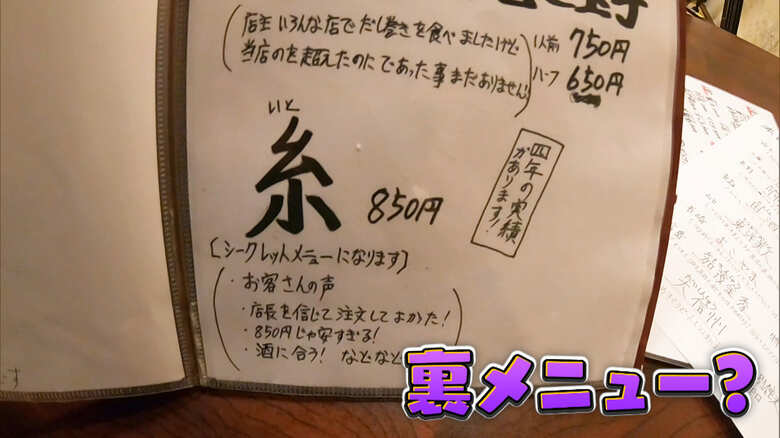 店主いろんな店でだし巻きを食べましたけど
当店のを超えたのにであった事まだありません!
1人前 750円
ハーフ 650円
いと
糸 850円
四年の実績
があります!
[シークレットメニューになります]
・お客さんの声
・店長を信じて注文してよかった!
・850円じゃ安すぎる!
・酒に合う! などなど
裏メニュー?